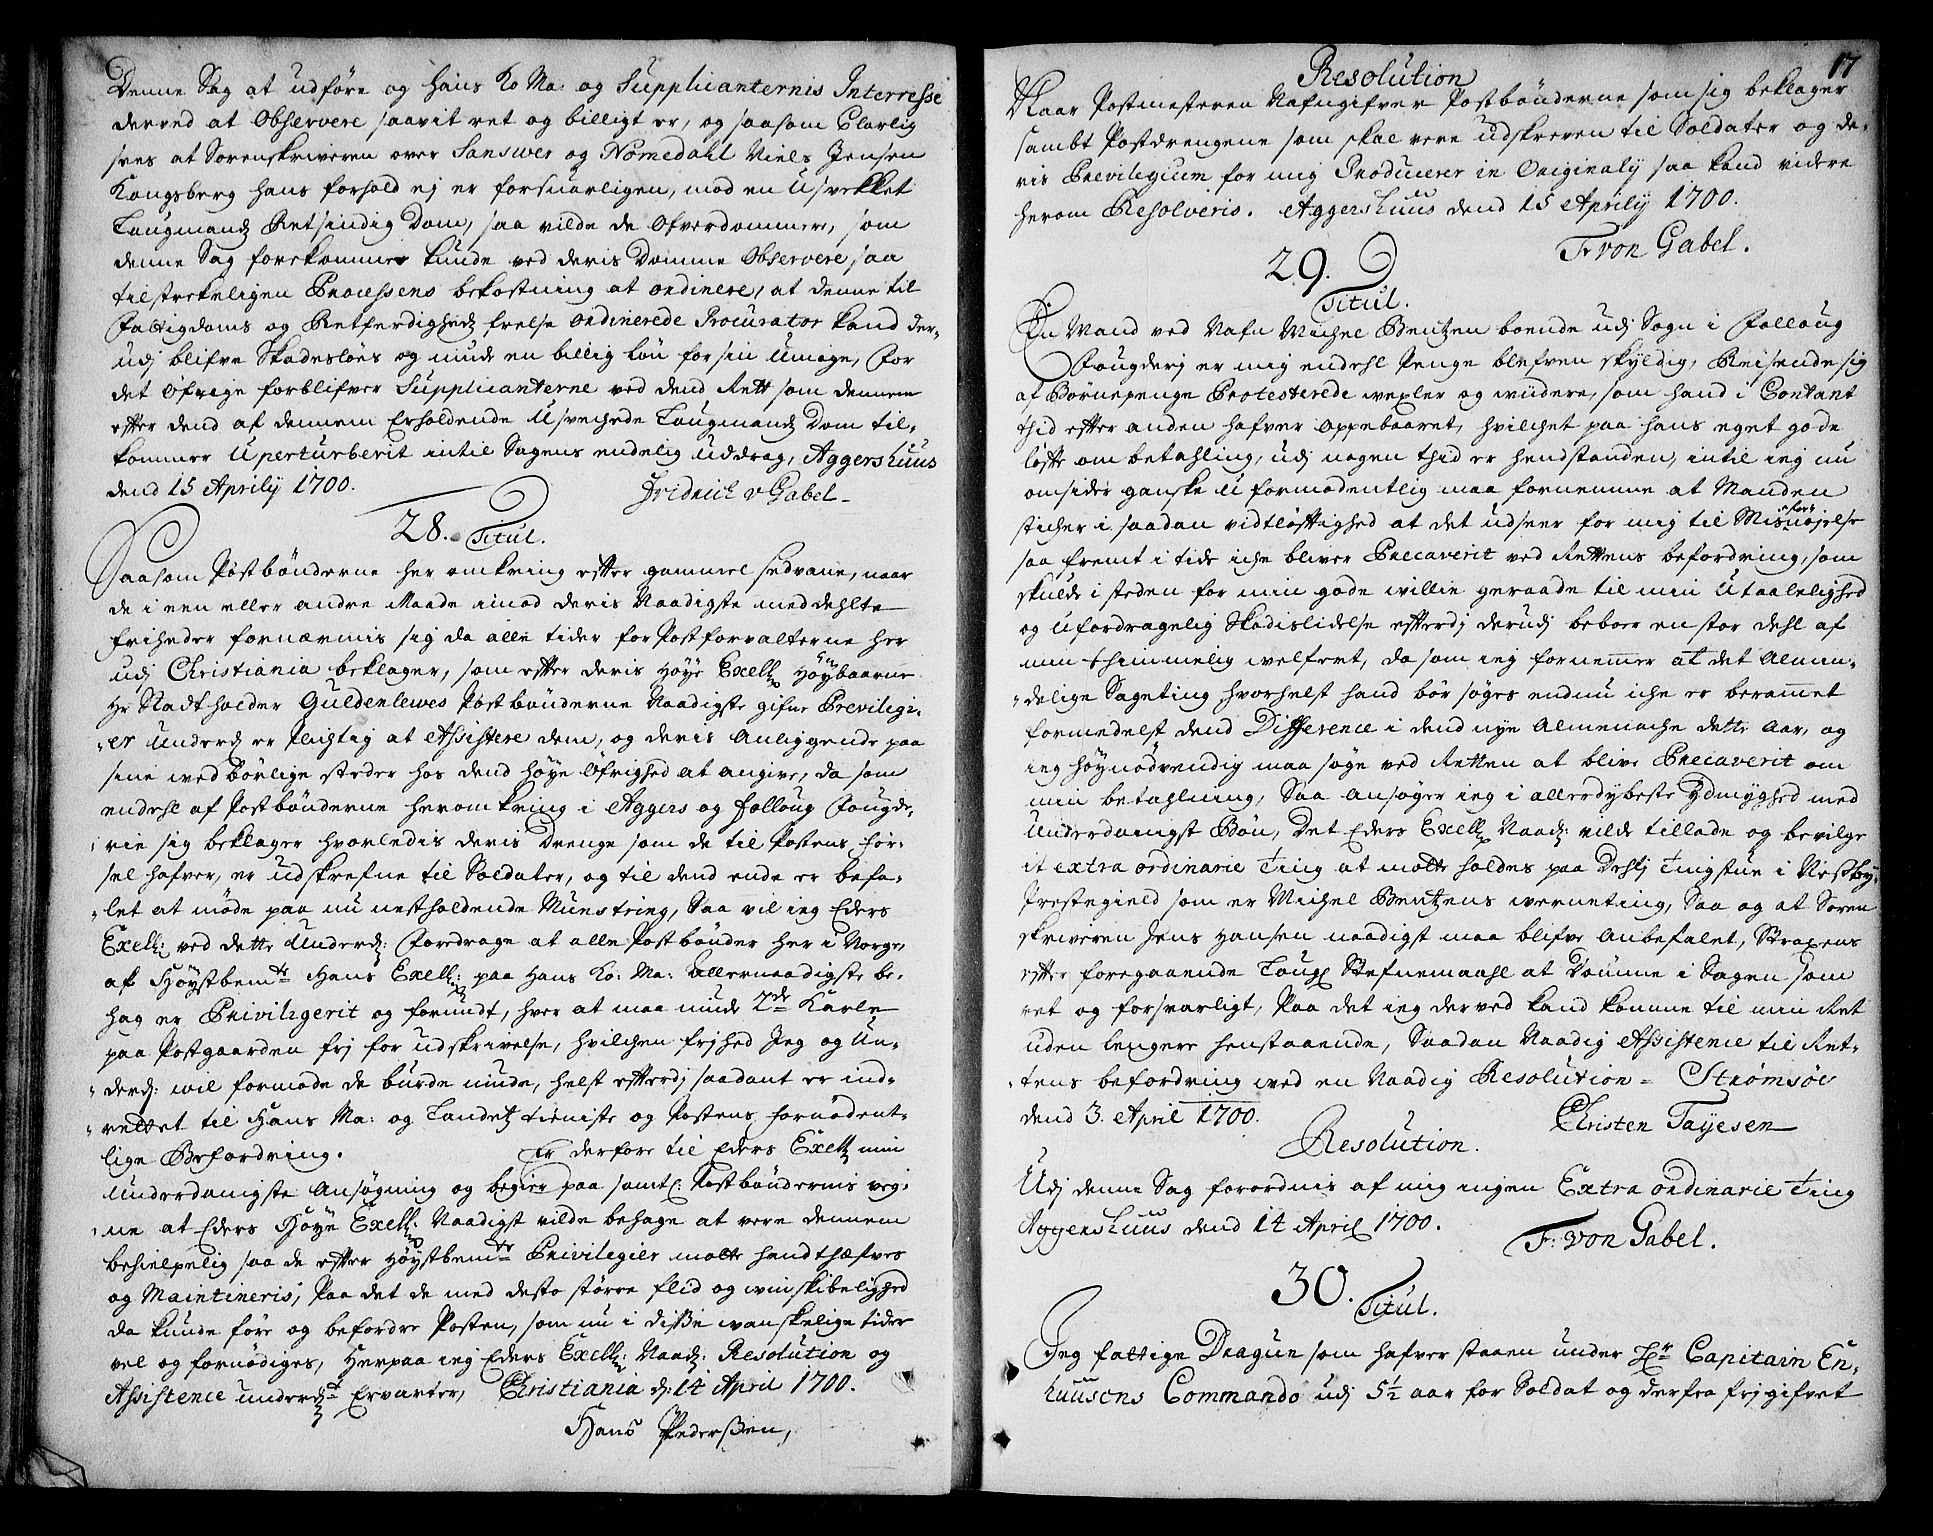 Denne Sag at udføre og Hans Ko Ma: og Supplicanternis Interresse
derved at Observere saavit ret og billigt er, og saasom Clarlig
sees at Sorenskriveren over Sansver og Nomedahl Niels Jensen
Kongsberg hans forhold ej er forsuarligen, mod en Usvekket
Laugmandz Retsindig Dom, saa vilde de Ofverdommere, som
denne Sag forekommer kunde ved deris Domme Observere saa
tilstrekeligen Processens bekostning at ordinere, at denne til
Fattigdoms og Retferdigheds frelse Ordinerede Procurator kand der-
udj blifve Skadesløes og nyde en billig løn for sin Umage, For
det Øfrige forblifver Supplicanterne ved dend Rett som dennem
efter dend af dennem Erholdende Usvechede Laugmandz Dom til-
kommer Uperturberit intil Sagens endelig Uddrag, Aggershuus
dend 15 Aprily 1700. Fridrich v Gabel
28. Titul.
Saasom Postbønderne her omkring efter gammel sedvane, naar
de i een eller andre Maade imod deris Naadigste meddehlte
friheder fornærmis sig da alle tider for Postforvalterne her
udj Christiania beklager, som efter deris Høye Excell: Høybaarne
Hr Stadtholder Guldenlewes Postbønderne Naadigste gifne Previlegi-
er Underd: er Plichtig at Assistere dem, og deris Anliggende paa
sine wed børlige steder hos dend høye Øfrighed at angive, da som
endehl af Postbønderne heromkring i Aggers og Folloug Fougde-
rie sig beklager hvorledis deris Drenge som de til Postens før-
sel hafver, er udskrefne til Soldater, og til dend ende er befa-
let at møde paa nu nestholdende Munstring, Saa vil ieg Eders
Excell: ved dette Underd: Fordrage at alle Postbønder her i Norge,
af Høystbemte Hans Excell: paa Hans Ko: Ma: allernaadigste be-
hag er Privilegerit og forundt, hver at maa nyde 2de Karle
paa Postgaarden frj for udskrivelse, hvilchen frjhed Jeg og Un-
derd: wil formode de burde nyde, helst efterdj saadant er ind-
rettet til Hans Ma: og Landetz tieniste og Postens fornødent-
lige Befordring. Er derfore til Eders Excell: min
Underdanigste Ansøgning og begier paa samtl: Postbøndernis veg-
ne at Eders Høye Excell: Naadigst vilde behage at vere dennem
behielpelig saa de efter Høystbemte Privilegier motte handthæfves
og Maintineris, Paa det de med desto større flid og winskibelighed
da kunde føre og befordre Posten, som nu i disse wanskelige tider
vel og fornødiges, Herpaa ieg Eders Excell: Naad: Resolution og
Assistence underdt Ervarter, Christiania d: 14 April 1700.
Hans Pederssen,
17
Resolution
Naar Postmesteren Nafngifver Postbønderne som sig beklager
sambt Postdrengene som skal vere udskreven til Soldater og de-
ris Previlegium for mig Producerer in Originalj saa kand videre
herom Resolveris. Aggershuus dend 15 Aprily 1700.
Fr von Gabel.
29.
Titul.
En Mand ved Nafn Michel Bentzen boende udj Sogn i Folloug
Fougderj er mig endehl Penge blefven skyldig, Reisende sig
af Børnepenge Protesterede wexler og widere, som hand i Contant
thid efter anden hafver oppebaaret, hvilchet paa hans eget gode
løfte om betahling, udj nogen thid er hendstanden, intil ieg nu
omsider ganske uformodentlig maa fornemme at Manden
sticher i saadan vidtløftighed at det udseer for mig til Misnøjelse
saa fremt i tide iche bliver Precaverit ved Rettens befordring, som
skulde i steden for min gode willie geraade til min Utaalelighed
og Ufordragelig Skadislidelse efterdj derudj beboer en stor dehl af
min thimmelig welfert, da som ieg fornemmer at det Almin-
delige Sageting hvorhelst hand bør søges endnu iche er berammet
formedelst dend Difference i dend nye Almenache dette Aar, og
ieg høynødvendig maa søge ved Retten at blive Precaverit om
min betahling, Saa Ansøger ieg i allerdybeste Ydmyghed med
Underdanigst Bøn, Det Eders Excell: Naad: vilde tillade og bevilge
it extra ordinarie Ting at motte holdes paa Dehlj tingstue i Nessby-
Prestegield som er Michel Bentzens werneting, Saa og at Soren
skriveren Jens Hansen naadigst maa blifve Anbefalet, Straxens
efter foregaaende Laugl Stefnemaahl at Dømme i Sagen som
ret og forsvarligt, Paa det ieg derved kand komme til min Ret
uden lengere henstaaende, Saadan Naadig Assistence til Ret-
tens befordring wed en Naadig Resolution - Strømsøe
dend 3. April 1700. Christen Tayesen
Resolution.
Udj denne Sag forordnis af mig ingen Extra ordinarie Ting
Aggershuus dend 14 April 1700.
F: von Gabel.
30.
Titul.
Jeg fattige Dragun som hafver staaen under Hr Capitain En-
huusens Commando udj 5½ aar for Soldat og derfra frj gifvet